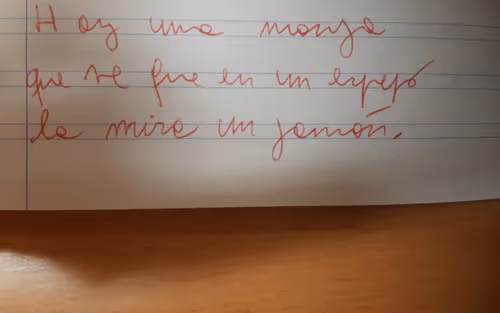 Hay una monja
que se fue en un espejo
la mira un jamón.